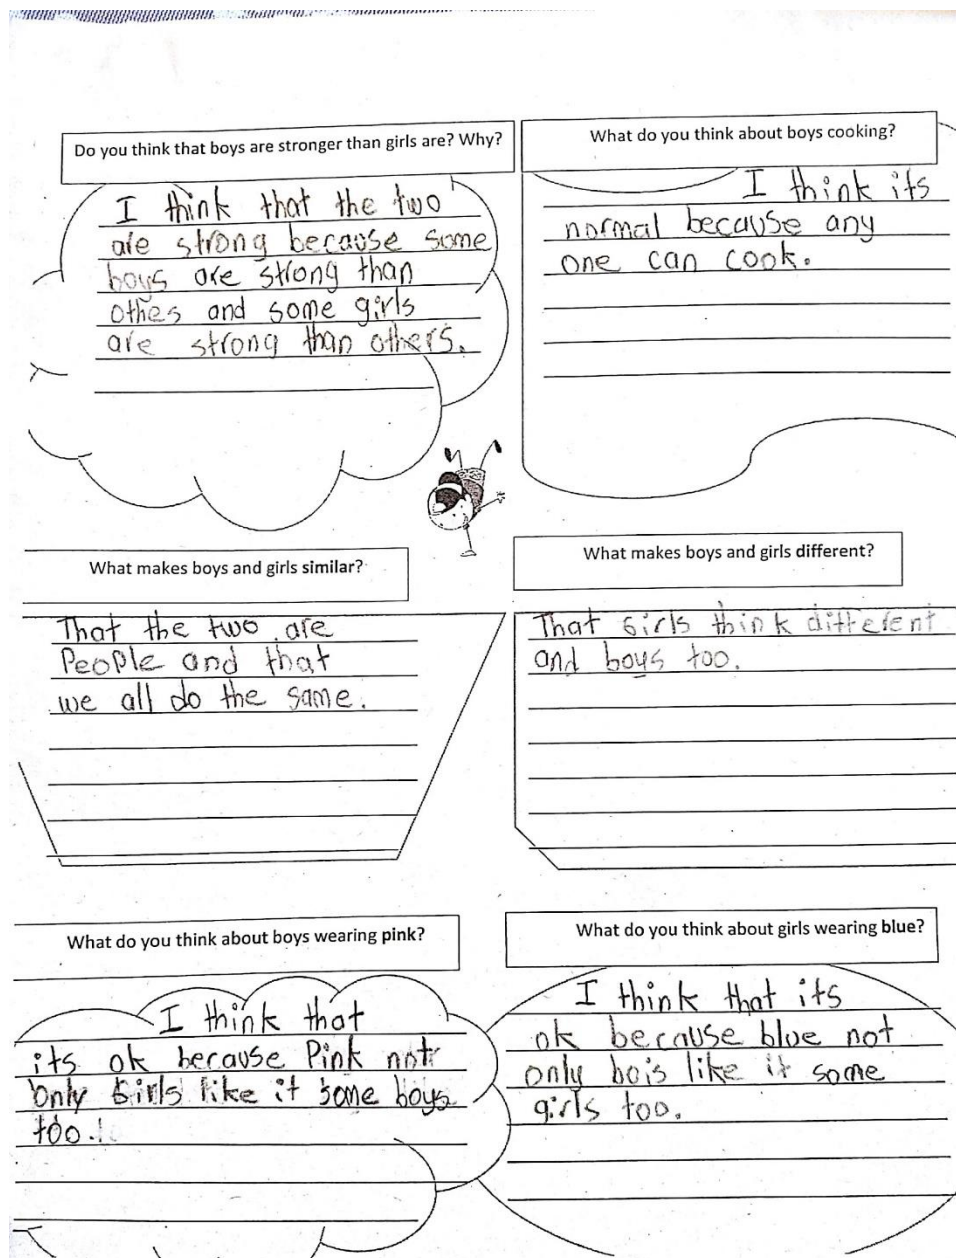 Do you think that boys are stronger than girls are? Why?
I think that the two
are strong because some
boys are strong than
othes and some girls
are strong than others.
What do you think about boys cooking?
I think its
normal because any
one can cook.
What makes boys and girls similar?
That the two are
People and that
we all do the same.
What makes boys and girls different?
That Girls think different
and boys too.
What do you think about boys wearing pink?
I think that
its ok because Pink not
only Girls like it some boys
too.
What do you think about girls wearing blue?
I think that its
ok because blue not
only bois like it some
girls too.